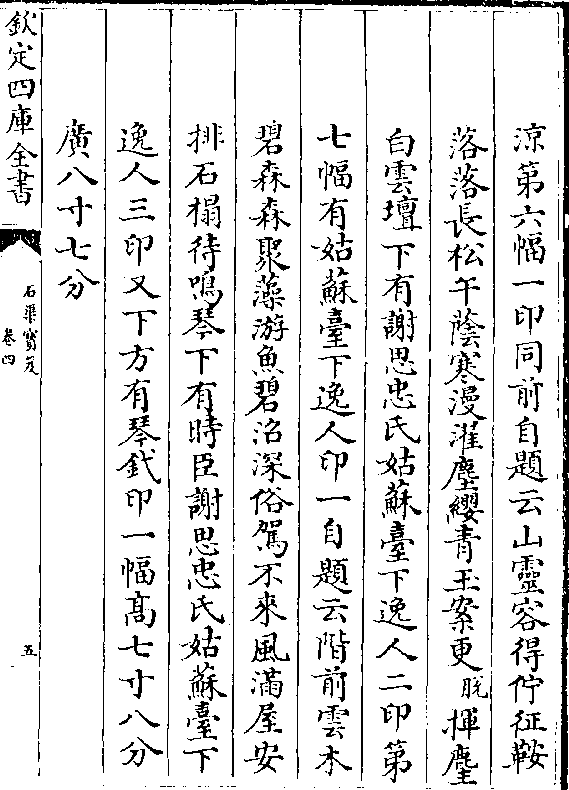 涼第六幅一印同前自題云山靈容得佇征鞍
落落長松午蔭寒漫濯塵纓青玉案更脱揮麈
白雲壇下有謝思忠氏姑蘇臺下逸人二印第
七幅有姑蘇臺下逸人印一自題云階前雲木
碧森森聚藻游魚碧沼深俗駕不來風滿屋安
排石榻待鳴琴下有時臣謝思忠氏姑蘇臺下
逸人三印又下方有琴釴印一幅髙七寸八分
廣八寸七分
欽定四庫全書
石渠寳笈
卷四
五